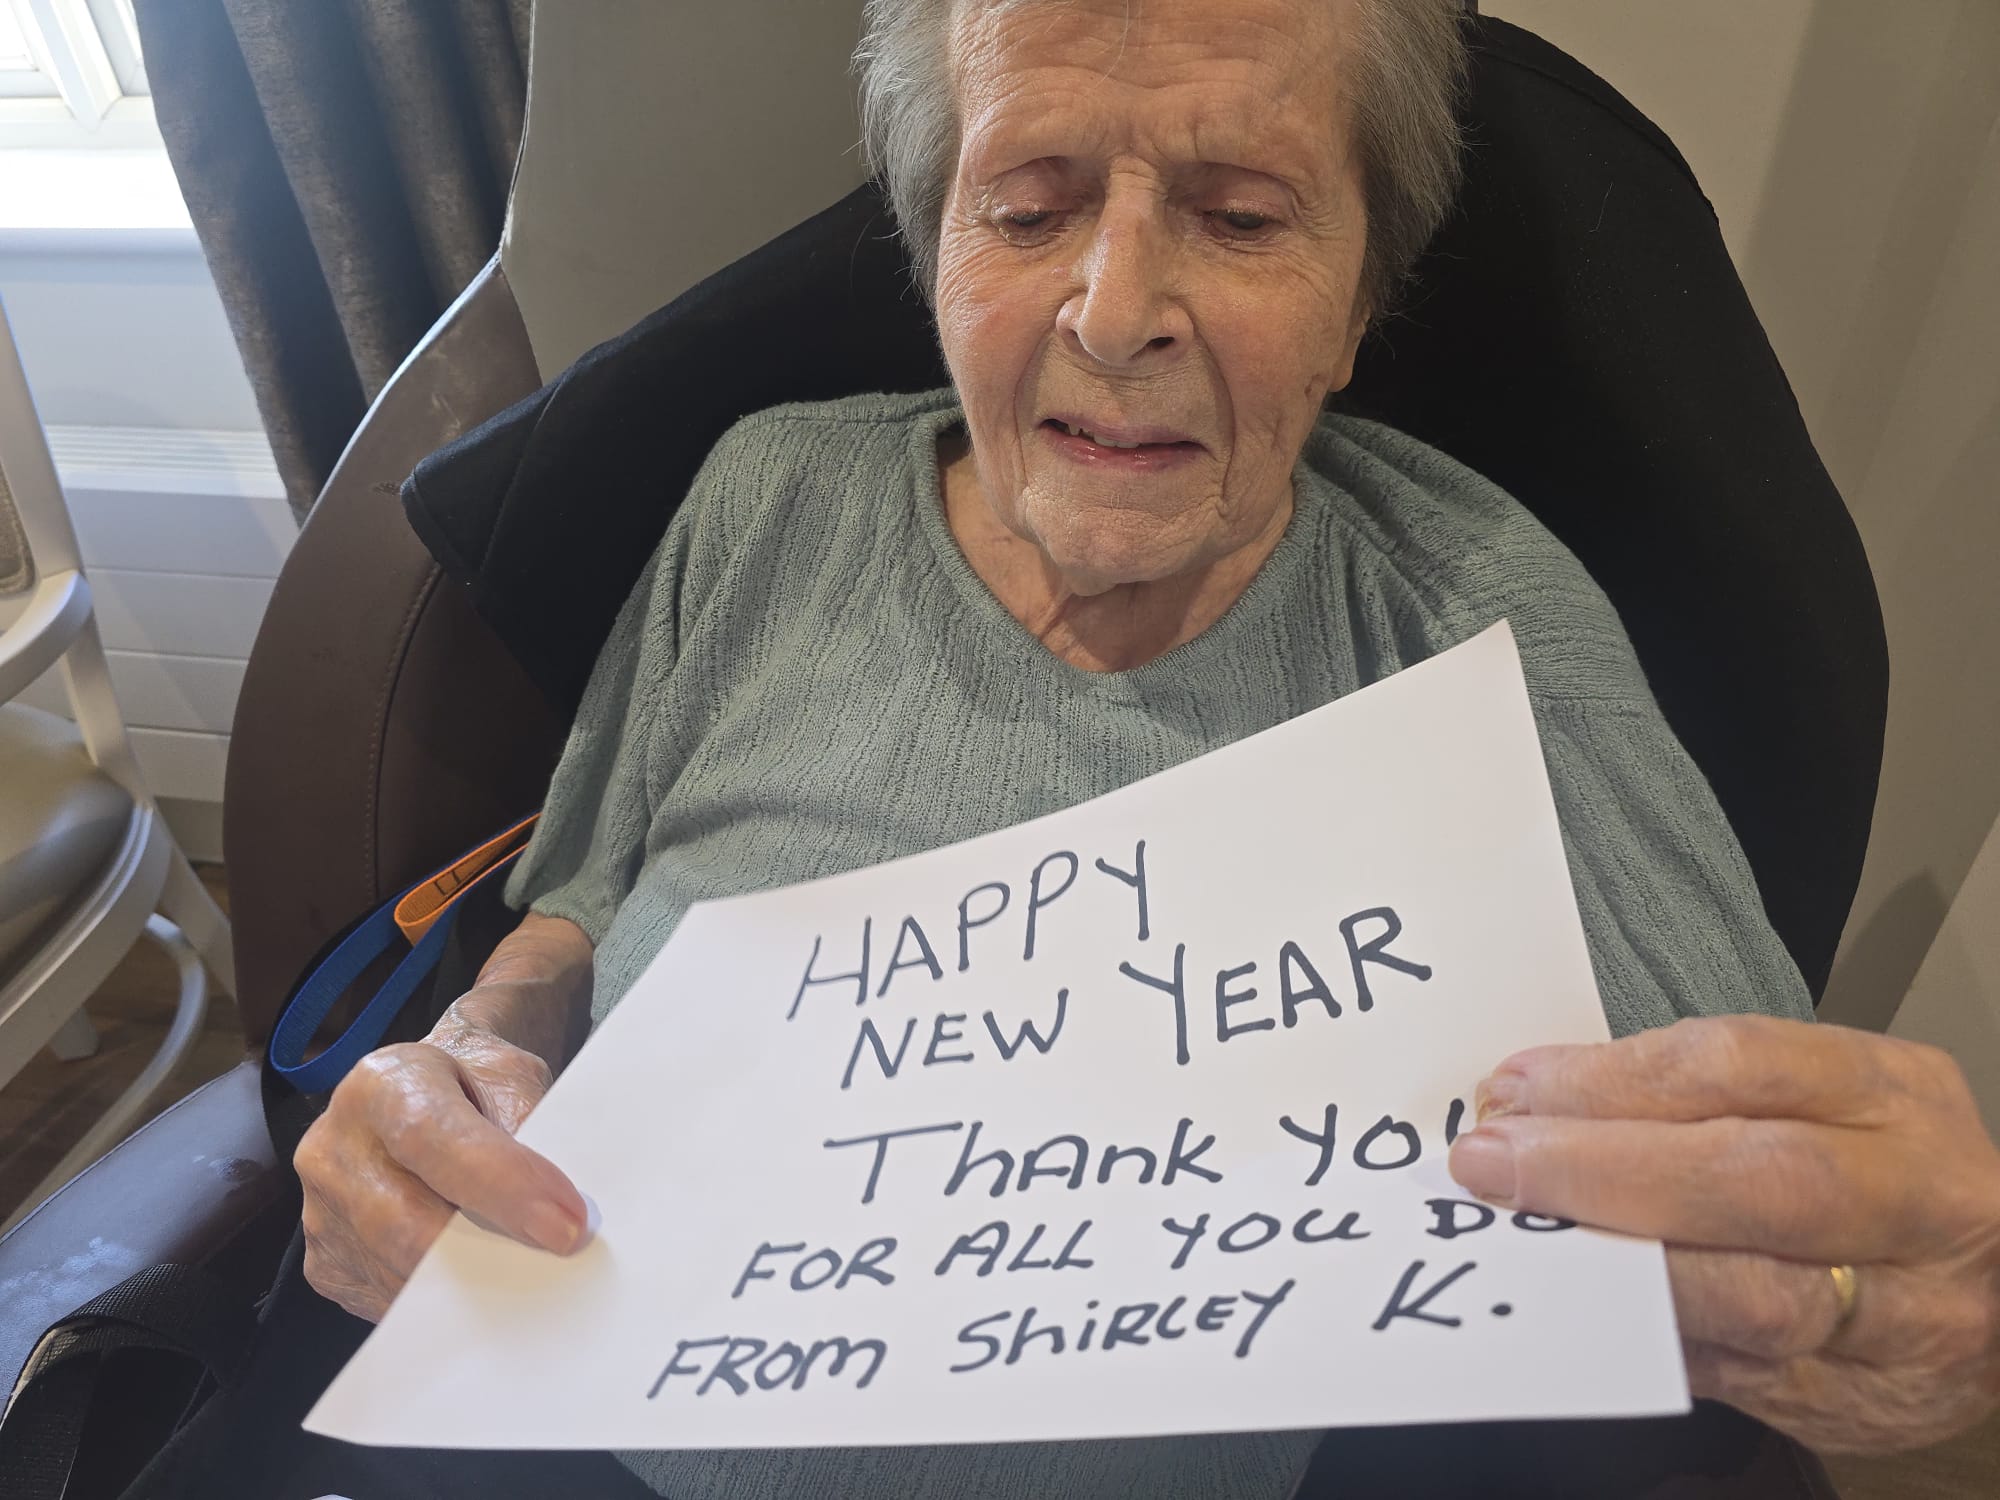 HAPPY
NEW YEAR
Thank YOU
FOR ALL YOU DO
FROM ShiRLEY K.